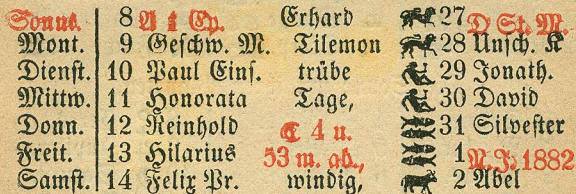 Sonnt. 8 A 1 Ep. Erhard 27 D St. M.
Mont. 9 Geschw. M. Tilemon 28 Unsch. K
Dienst. 10 Paul Eins. trübe 29 Jonath.
Mittw. 11 Honorata Tage, 30 David
Donn. 12 Reinhold ☾ 4 u. 31 Silvester
Freit. 13 Hilarius 53 m. ab., 1 N. J. 1882
Samst. 14 Felix Pr. windig, 2 Abel